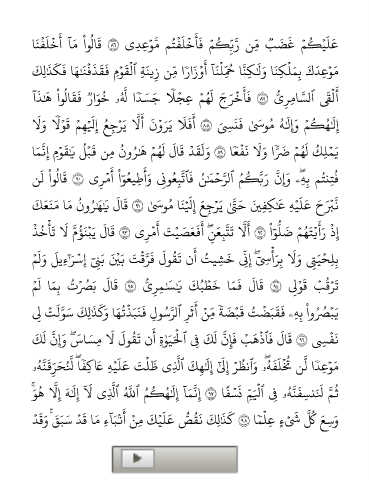 عَلَيْكُمْ غَضَبٌ مِّن رَّبِّكُمْ فَأَخْلَفْتُم مَّوْعِدِى ۝٨٦ قَالُوا۟ مَآ أَخْلَفْنَا
مَوْعِدَكَ بِمَلْكِنَا وَلَـٰكِنَّا حُمِّلْنَآ أَوْزَارًا مِّن زِينَةِ ٱلْقَوْمِ فَقَذَفْنَـٰهَا فَكَذَٰلِكَ
أَلْقَى ٱلسَّامِرِىُّ ۝٨٧ فَأَخْرَجَ لَهُمْ عِجْلًا جَسَدًا لَّهُۥ خُوَارٌ فَقَالُوا۟ هَـٰذَآ
إِلَـٰهُكُمْ وَإِلَـٰهُ مُوسَىٰ فَنَسِىَ ۝٨٨ أَفَلَا يَرَوْنَ أَلَّا يَرْجِعُ إِلَيْهِمْ قَوْلًا وَلَا
يَمْلِكُ لَهُمْ ضَرًّا وَلَا نَفْعًا ۝٨٩ وَلَقَدْ قَالَ لَهُمْ هَـٰرُونُ مِن قَبْلُ يَـٰقَوْمِ إِنَّمَا
فُتِنتُم بِهِۦ ۖ وَإِنَّ رَبَّكُمُ ٱلرَّحْمَـٰنُ فَٱتَّبِعُونِى وَأَطِيعُوٓا۟ أَمْرِى ۝٩٠ قَالُوا۟ لَن
نَّبْرَحَ عَلَيْهِ عَـٰكِفِينَ حَتَّىٰ يَرْجِعَ إِلَيْنَا مُوسَىٰ ۝٩١ قَالَ يَـٰهَـٰرُونُ مَا مَنَعَكَ
إِذْ رَأَيْتَهُمْ ضَلُّوٓا۟ ۝٩٢ أَلَّا تَتَّبِعَنِ ۖ أَفَعَصَيْتَ أَمْرِى ۝٩٣ قَالَ يَبْنَؤُمَّ لَا تَأْخُذْ
بِلِحْيَتِى وَلَا بِرَأْسِىٓ ۖ إِنِّى خَشِيتُ أَن تَقُولَ فَرَّقْتَ بَيْنَ بَنِىٓ إِسْرَٰٓءِيلَ وَلَمْ
تَرْقُبْ قَوْلِى ۝٩٤ قَالَ فَمَا خَطْبُكَ يَـٰسَـٰمِرِىُّ ۝٩٥ قَالَ بَصُرْتُ بِمَا لَمْ
يَبْصُرُوا۟ بِهِۦ فَقَبَضْتُ قَبْضَةً مِّنْ أَثَرِ ٱلرَّسُولِ فَنَبَذْتُهَا وَكَذَٰلِكَ سَوَّلَتْ لِى
نَفْسِى ۝٩٦ قَالَ فَٱذْهَبْ فَإِنَّ لَكَ فِى ٱلْحَيَوٰةِ أَن تَقُولَ لَا مِسَاسَ ۖ وَإِنَّ لَكَ
مَوْعِدًا لَّن تُخْلَفَهُۥ ۖ وَٱنظُرْ إِلَىٰٓ إِلَـٰهِكَ ٱلَّذِى ظَلْتَ عَلَيْهِ عَاكِفًا ۖ لَّنُحَرِّقَنَّهُۥ
ثُمَّ لَنَنسِفَنَّهُۥ فِى ٱلْيَمِّ نَسْفًا ۝٩٧ إِنَّمَآ إِلَـٰهُكُمُ ٱللَّهُ ٱلَّذِى لَآ إِلَـٰهَ إِلَّا هُوَ ۚ
وَسِعَ كُلَّ شَىْءٍ عِلْمًا ۝٩٨ كَذَٰلِكَ نَقُصُّ عَلَيْكَ مِنْ أَنۢبَآءِ مَا قَدْ سَبَقَ ۚ وَقَدْ